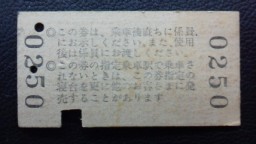 0250
◎この券は、乗車後直ちに係員
にお示しください。また、使用
後は係員にお渡しください。
◎この券の指定乗車駅で乗車さ
れないときは、この券指定の
寝台を更に他のお客さまに発
売することがあります
0250